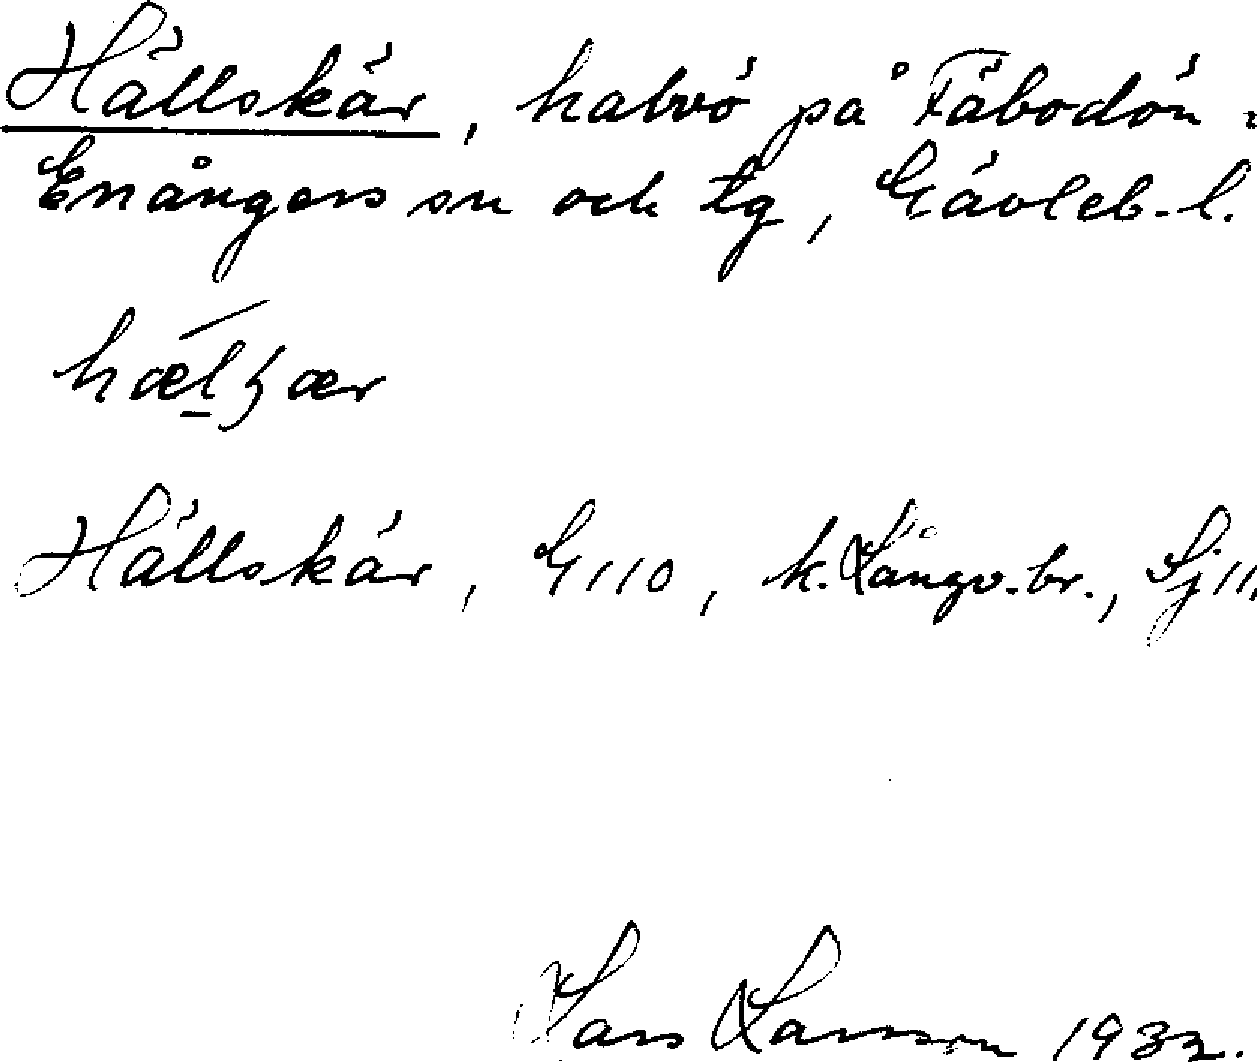 Hällskär, halvö på Fäbodön,
Enångers sn och tg, Gävleb. l.
Hällskär, G 110, k. Långv. br., Sj 11.
Lars Larsson 1932.